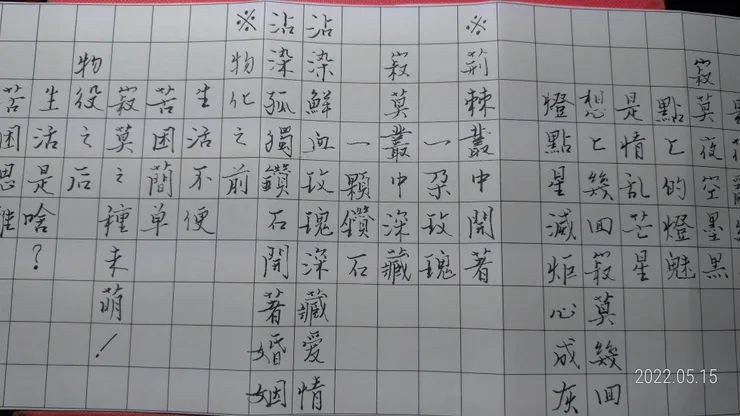 寂莫夜空墨黑
點〻的燈魅
是情乱芒星
想〻幾回寂莫幾回
燈點星滅炬心成灰
※荊棘叢中開著
一朵玫瑰
寂莫叢中深藏
一顆鑽石
沾染鮮血玫瑰深藏愛情
沾染孤獨鑽石開著婚姻
※物化之前
生活不便
苦困蕳单
寂莫之種未萌！
物役之后
生活是啥？
苦困思
2022.05.15